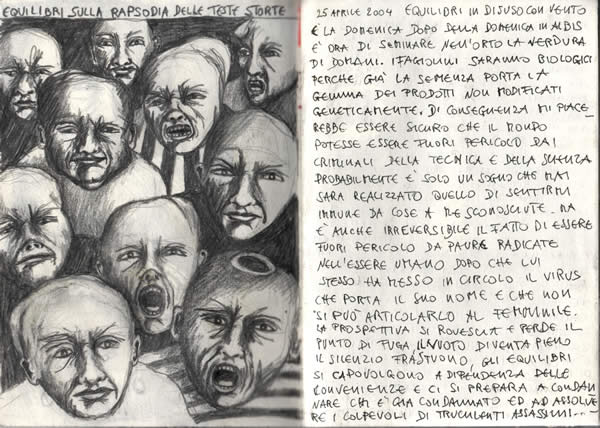 EQUILIBRI SULLA RAPSODIA DELLE TESTE STORTE
25 APRILE 2004 EQUILIBRI IN DISUSO CON VENTO
È LA DOMENICA DOPO DELLA DOMENICA IN ALBIS
E' ORA DI SEMINARE NELL'ORTO LA VERDURA
DI DOMANI. I FAGIOLINI SARANNO BIOLOGICI
PERCHE GIÀ LA SEMENZA PORTA LA
GEMMA DEI PRODOTTI NON MODIFICATI
GENETICAMENTE. DI CONSEGUENZA MI PIACE
REBBE ESSERE SICURO CHE IL MONDO
POTESSE ESSERE FUORI PERICOLO DAI
CRIMINALI DELLA TECNICA E DELLA SCIENZA
PROBABILMENTE E' SOLO UN SOGNO CHE MAI
SARA REALIZZATO QUELLO DI SENTIRMI
IMMUNE DA COSE A ME SCONOSCIUTE. MA
E' ANCHE IRREVERSIBILE IL FATTO DI ESSERE
FUORI PERICOLO DA PAURE RADICATE
NELL'ESSERE UMANO DOPO CHE LUI
STESSO HA MESSO IN CIRCOLO IL VIRUS
CHE PORTA IL SUO NOME E CHE NON
SI PUÒ ARTICOLARLO AL FEMMINILE.
LA PROSPETTIVA SI ROVESCIA E PERDE IL
PUNTO DI FUGA. IL VUOTO DIVENTA PIENO
IL SILENZIO FRASTUONO, GLI EQUILIBRI
SI CAPOVOLGONO A DIPENDENZA DELLE
CONVENIENZE E CI SI PREPARA A CONDAN
NARE CHI E' GIÀ CONDANNATO ED AD ASSOLVE
RE I COLPEVOLI DI TRUCULENTI ASSASSINI...